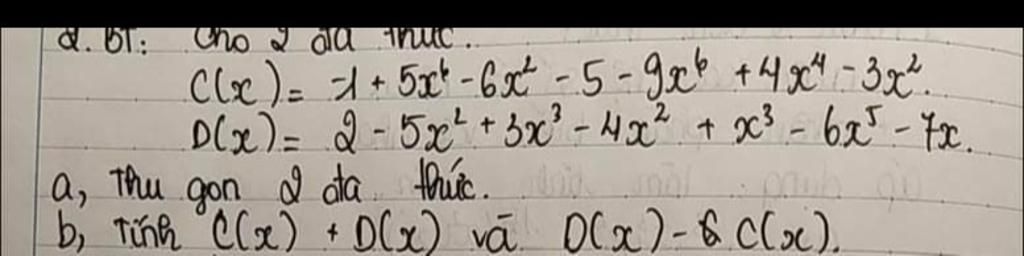 2. BT: Cho 2 đa thức.
C(x) = -1 + 5x⁶ - 6x² - 5 - 9x⁶ + 4x⁴ - 3x².
D(x) = 2 - 5x² + 3x³ - 4x² + x³ - 6x⁵ - 7x.
a, Thu gọn 2 đa thức.
b, Tính C(x) + D(x) và D(x) - C(x).